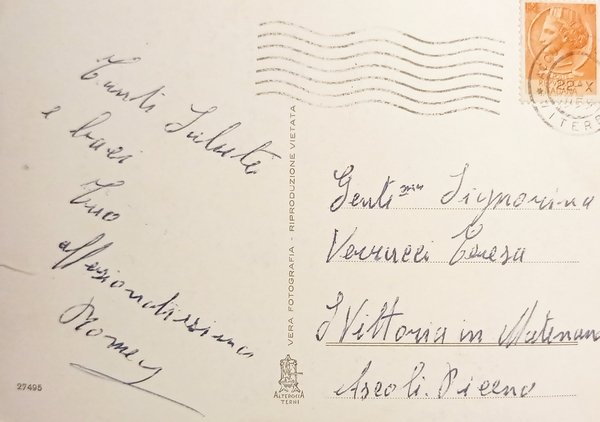 Tanti Saluti
e baci
Tuo
affezionatissimo
27495
VERA FOTOGRAFIA - RIPRODUZIONE VIETATA
ALTEROCCA
TERNI
22
Genti.ma Signorina
Verrucci Teresa
S Vittoria in Matenano
Ascoli-Piceno